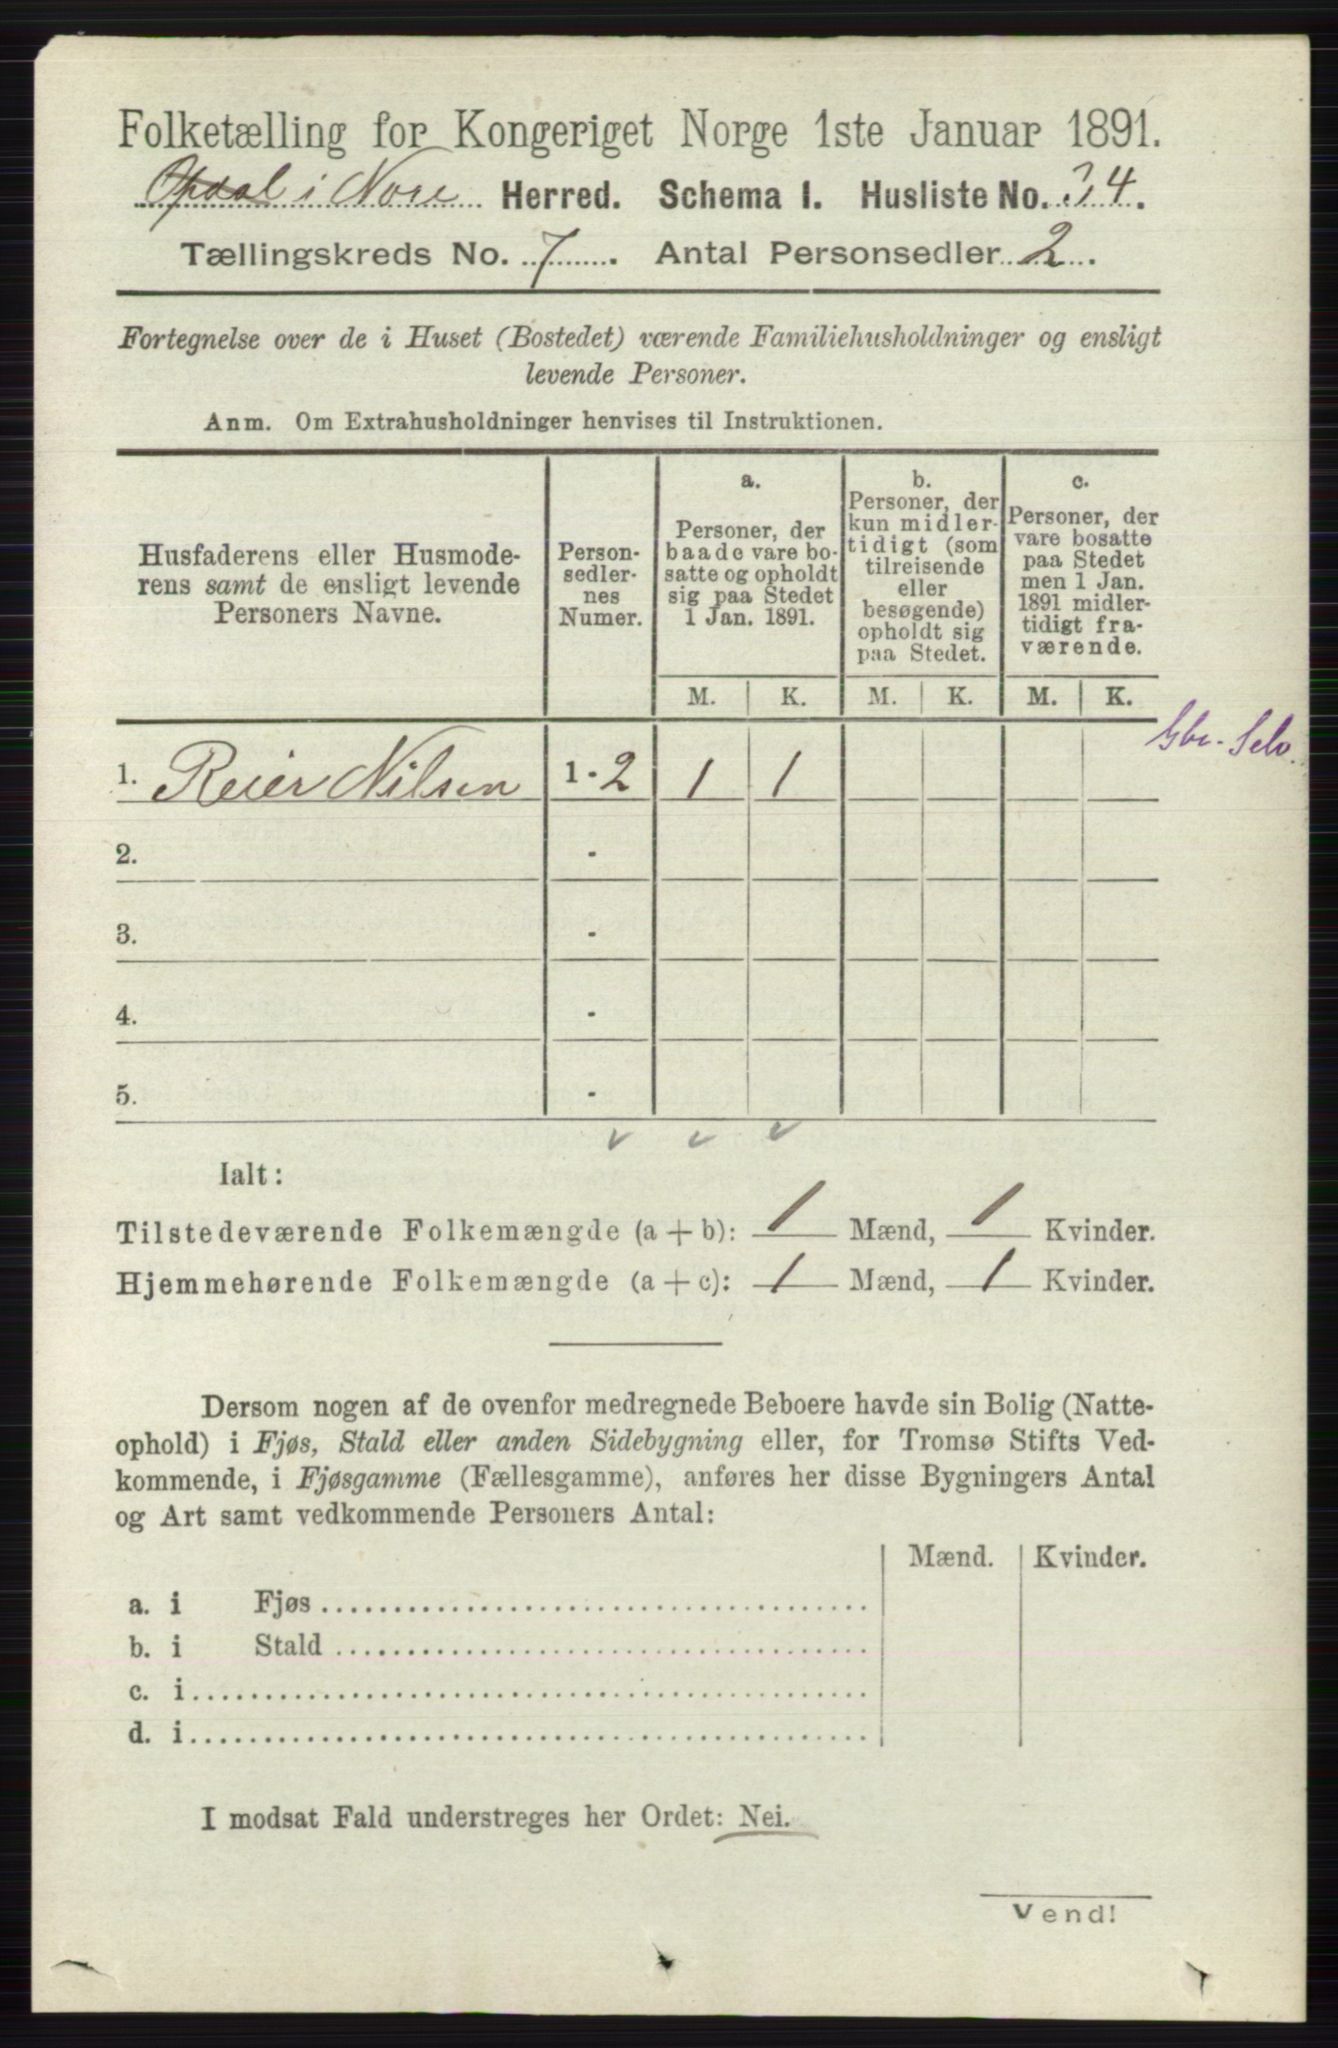 Folketælling for Kongeriget Norge 1ste Januar 1891.
Opdal i Nore Herred. Schema I. Husliste No. 34.
Tællingskreds No. 7. Antal Personsedler 2.
Fortegnelse over de i Huset (Bostedet) værende Familiehusholdninger og ensligt
levende Personer.
Anm. Om Extrahusholdninger henvises til Instruktionen.
Husfaderens eller Husmode-
rens samt de ensligt levende
Personers Navne.
Person-
sedler-
nes
Numer.
a.
Personer, der
baade vare bo-
satte og opholdt
sig paa Stedet
1 Jan. 1891.
b.
Personer, der
kun midler-
tidigt (som
tilreisende
eller
besøgende)
opholdt sig
paa Stedet.
c.
Personer, der
vare bosatte
paa Stedet
men 1 Jan.
1891 midler-
tidigt fra-
værende.
M. K. M. K. M. K.
1. Reier Nilsen 1 - 2 1 1
Gbr. Selv.
2. -
3. -
4. -
5. -
Ialt:
Tilstedeværende Folkemængde (a + b): 1 Mænd, 1 Kvinder.
Hjemmehørende Folkemængde (a + c): 1 Mænd, 1 Kvinder.
Dersom nogen af de ovenfor medregnede Beboere havde sin Bolig (Natte-
ophold) i Fjøs, Stald eller anden Sidebygning eller, for Tromsø Stifts Ved-
kommende, i Fjøsgamme (Fællesgamme), anføres her disse Bygningers Antal
og Art samt vedkommende Personers Antal:
Mænd. Kvinder.
a. i Fjøs
b. i Stald
c. i
d. i
I modsat Fald understreges her Ordet: Nei.
Vend!